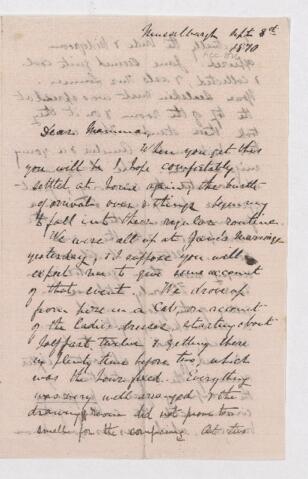 Musselburgh Sept 3rd
1870
Dear Mamma,
When you get this
you will be I hope comfortably
settled at home again, the bustle
of arrival over & things beginning
to fall into their regular routine.
We were all up at Janie's marriage
yesterday, & I suppose you will
expect me to give some account
of that event. We drove up
from here in a Cab, on account
of the Ladies dresses, starting about
half past twelve & getting there
in plenty time before two, which
was the hour fixed. Everything
was very well arranged & the
drawing room did not prove too
small for the company. At two